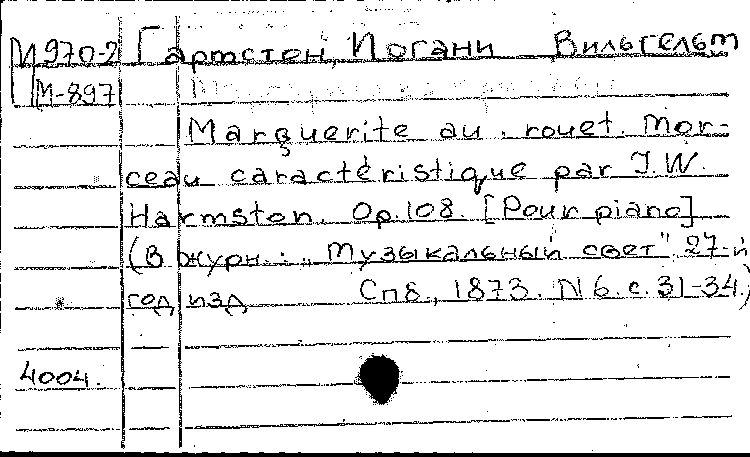 М970-2 Гартстон, Иогани Вильгельм
М-897
Marguerite au rouet. Mor-
ceau caractéristique par J.W.
Harmston. Op.108. [Pour piano]
(В журн.: „Музыкальный свет", 27-й
год изд Спб., 1873. N 6. с. 31-34.)
4004.